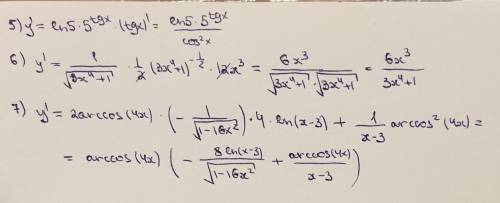 5) y' = ln5 · 5^tgx · (tgx)' = ln5 · 5^tgx / cos²x
6) y' = 1/√(3x⁴+1) · 1/2 (3x⁴+1)^(-1/2) · 12x³ = 6x³/(√(3x⁴+1) · √(3x⁴+1)) = 6x³/(3x⁴+1)
7) y' = 2arccos(4x) · (- 1/√(1-16x²)) · 4 · ln(x-3) + 1/(x-3) arccos²(4x) =
= arccos(4x) (- 8ln(x-3)/√(1-16x²) + arccos(4x)/(x-3))